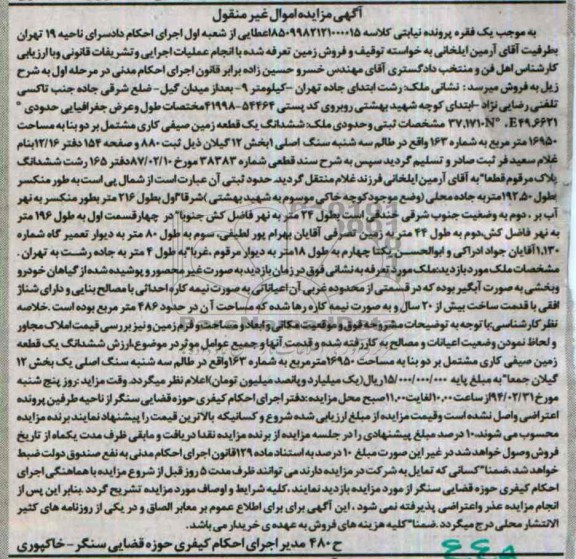 آگهی مزایده اموال غیر منقول
به موجب یک فقره پرونده نیابتی کلاسه ۸۵۰۹۹۸۲۱۲۱۰۰۰۰۱۵اعطایی از شعبه اول اجرای احکام دادسرای ناحیه ۱۹ تهران
بطرفیت آقای آرمین ایلخانی به خواسته توقیف و فروش زمین تعرفه شده با انجام عملیات اجرایی و تشریفات قانونی وباارزیابی
کارشناس اهل فن و منتخب دادگستری آقای مهندس خسرو حسین زاده برابر قانون اجرای احکام مدنی در مرحله اول به شرح
زیل به فروش میرسد : نشانی ملک: رشت ابتدای جاده تهران -کیلومتر ۹- بعداز میدان گیل - ضلع شرقی جاده جنب تاکسی
تلفنی رضایی نژاد -ابتدای کوچه شهید بهشتی روبروی کد پستی ۵۴۴۶۴-۴۱۹۹۸مختصات طول وعرض جغرافیایی حدودی °
E۴۹,۶۶۲۱. °۳۷,۱۷۱۰N مشخصات ثبتی وحدودی ملک: ششدانگ یک قطعه زمین صیفی کاری مشتمل بر دو بنا به مساحت
۱۶۹۵۰ متر مربع به شماره ۱۶۳ واقع در طالم سه شنبه سنگ اصلی ۱بخش ۱۲ گیلان ذیل ثبت ۸۸۰ و صفحه ۱۵۴ دفتر ۱۲/۱۶بنام
غلام سعید فر ثبت صادر و تسلیم گردید سپس به شرح سند قطعی شماره ۳۸۳۸۳ مورخ ۸۷/۰۲/۱۰دفتر ۱۶۵ رشت ششدانگ
پلاک مرقوم قطعا" به آقای آرمین ایلخانی فرزند غلام منتقل گردید. حدود ثبتی آن عبارت است از شمال پی است به طور منکسر
بطول ۱۹۲,۵۰متر به جاده محلی (وضع موجود کوچه خاکی موسوم به شهید بهشتی )شرقا"اول بطول ۲۱۶ متر بطور منکسر به نهر
آب بر . دوم به وضعیت جنوب شرقی خندقی است بطول ۲۴ متر به نهر فاضل کش جنوبا" در چهارقسمت اول به طول ۱۹۶ متر
به نهر فاضل کش،دوم به طول ۴۴ متر به زمین تصرفی آقایان بهرام پور لطیفی، سوم به طول ۸۰ متر به دیوار تعمیر گاه شماره
۱,۱۳۰آقایان جواد ادراکی و ابوالحسن یکتا چهارم به طول ۱۸متر به دیوار مرقوم .غربا"به طول ۴ متر به جاده رشت به تهران .
مشخصات ملک مورد بازدید:ملک مورد تعرفه به نشانی فوق در زمان بازدید به صورت غیر محصور و پوشیده شده از گیاهان خودرو
وبخشی به صورت آبگیر بوده که در قسمتی از محدوده غربی آن اعیاناتی به صورت نیمه کاره احداثی با مصالح بنایی و دارای شناژ
افقی با قدمت ساخت بیش از ۲۰ سال و به صورت نیمه کاره رها شده که مساحت آن در حدود ۴۸۶ متر مربع بوده است .خلاصه
نظر کارشناسی:با توجه به توضیحات مشروحه فوق و موقعیت مکانی وابعاد و مساحت و فرم زمین و نیز بررسی قیمت املاک مجاور
و لحاظ نمودن وضعیت اعیانات و مصالح به کار رفته شده و قدمت آنها و جمیع عوامل موثر در موضوع ارزش ششدانگ یک قطعه
زمین صیفی کاری مشتمل بر دو بنا به مساحت ۱۶۹۵۰متر مربع به شماره ۱۶۳واقع در طالم سه شنبه سنگ اصلی یک بخش ۱۲
گیلان جمعا" به مبلغ پایه ۱۵/۰۰۰/۰۰۰/۰۰۰ریال(یک میلیارد و پانصد میلیون تومان)اعلام نظر میگردد. وقت مزایده :روز پنج شنبه
مورخ ۹۴/۰۲/۳۱از ساعت ۱۰,۰۰لغایت ۱۱,۰۰صبح محل مزایده:دفتر اجرای احکام کیفری حوزه قضایی سنگر از ناحیه طرفین پرونده
اعتراضی واصل نشده است وقیمت مزایده از مبلغ ارزیابی شده شروع و کسانیکه بالاترین قیمت را پیشنهاد نمایند برنده مزایده
محسوب می شوند، ۱۰ درصد مبلغ پیشنهادی را در جلسه مزایده از برنده مزایده نقدا دریافت و مابقی ظرف مدت یکماه از تاریخ
فروش وصول خواهد شد در غیر این صورت مبلغ ۱۰ درصد به استناد ماده ۱۲۹قانون اجرای احکام مدنی به نفع صندوق دولت ضبط
خواهد شد .ضمنا" کسانی که تمایل به شرکت در مزایده دارند می توانند ظرف مدت ۵ روز قبل از شروع مزایده با هماهنگی اجرای
احکام کیفری حوزه قضایی سنگر از مورد مزایده بازدید نمایند .کلیه شرایط و اوصاف مورد مزایده تشریح گردد .بنابر این پس از
انجام مزایده عذر واعتراضی پذیرفته نمی شود . این آگهی برای برای اطلاع عموم بر معابر الصاق و در یکی از روزنامه های کثیر
الانتشار محلی درج میگردد .ضمنا"کلیه هزینه های فروش به عهده ی خریدار می باشد.
ح ۴۸۰ مدیر اجرای احکام کیفری حوزه قضایی سنگر - خاکپوری